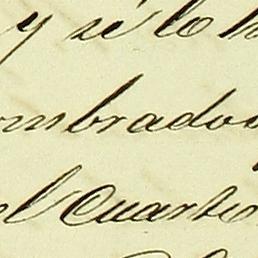 y si lo h
ombrados
el Cuarto